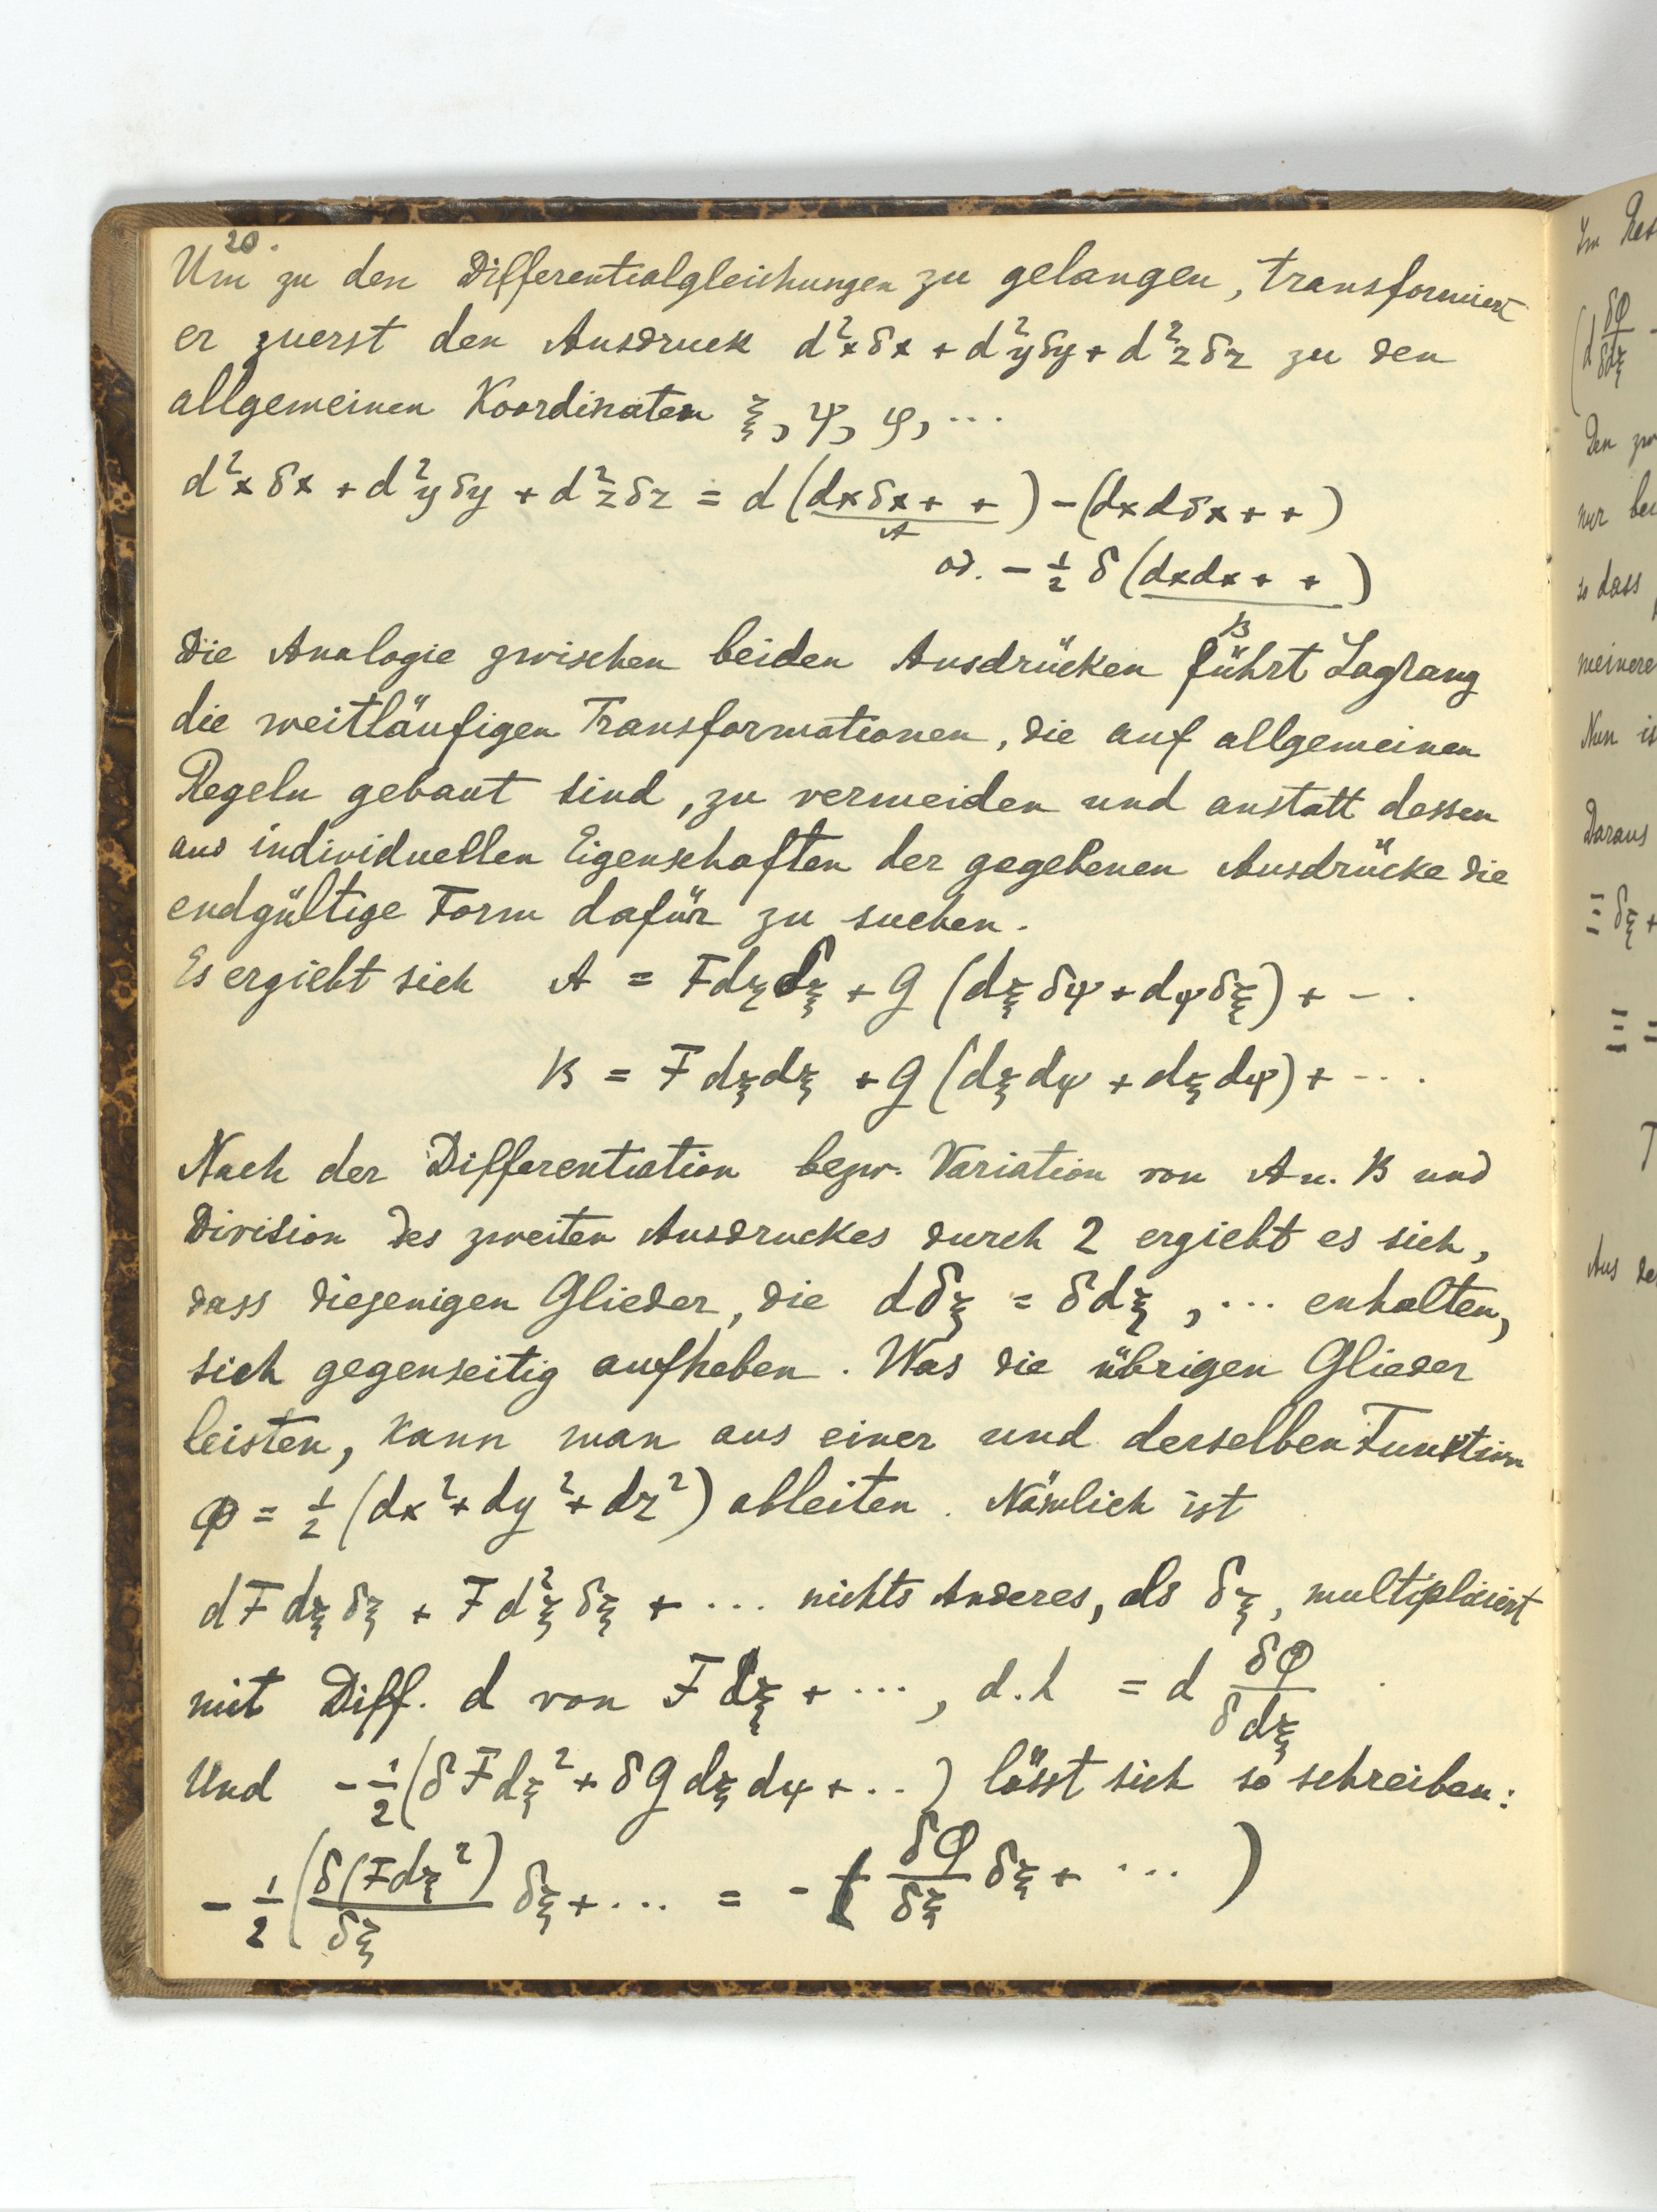 20.
Um zu den Differentialgleichungen zu gelangen, transformiert
er zuerst den Ausdruck d²xδx + d²yδy + d²zδz zu den
allgemeinen Koordinaten ξ, ψ, φ, ...
d²xδx + d²yδy + d²zδz = d(dxδx + +) - (dxdδx + +)
A
od. - 1/2 δ(dxdx + +)
B
Die Analogie zwischen beiden Ausdrücken führt Lagrang
die weitläufigen Transformationen, die auf allgemeinen
Regeln gebaut sind, zu vermeiden und anstatt dessen
aus individuellen Eigenschaften der gegebenen Ausdrücke die
endgültige Form dafür zu suchen.
Es ergiebt sich A = Fdξδξ + G(dξδψ + dψδξ) + - .
B = Fdξdξ + G(dξdψ + dξdψ) + ...
Nach der Differentiation bezw. Variation von A u. B und
Division des zweiten Ausdruckes durch 2 ergiebt es sich,
dass diejenigen Glieder, die dδξ = δdξ, ... enhalten,
sich gegenseitig aufheben. Was die übrigen Glieder
leisten, kann man aus einer und derselben Funktion
Φ = 1/2 (dx² + dy² + dz²) ableiten. Nämlich ist
dFdξδξ + Fd²ξδξ + ... nichts Anderes, als δξ, multipliciert
mit Diff. d von Fdξ + ..., d.h = d δΦ/δdξ
Und - 1/2 (δFdξ² + δGdξdψ + ..) lässt sich so schreiben:
- 1/2 (δ(Fdξ²)/δξ δξ + ... = - δΦ/δξ δξ + ... )
Im
(d δΦ/δdξ -
Den
nur
so dass
Nun
Daraus
Ξδξ +
Ξ =
T
Aus